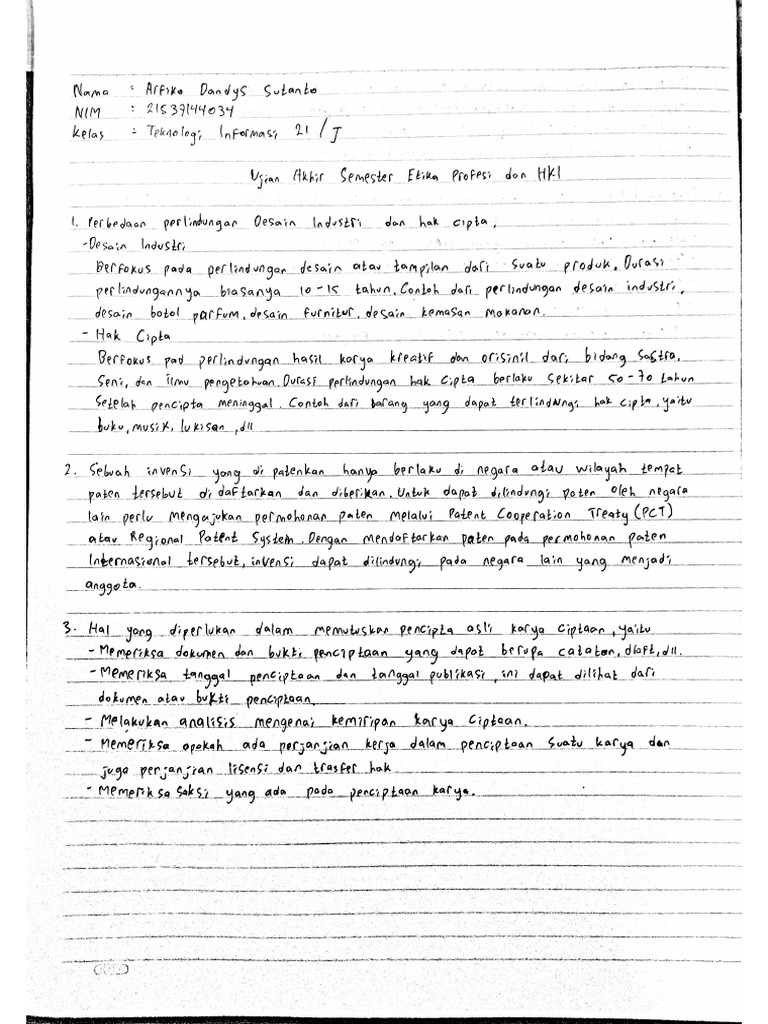 Nama : Arfiko Dandys Sutanto
NIM : 21537144034
Kelas : Teknologi Informasi 21 / J
Ujian Akhir Semester Etika Profesi dan HKI
1. Perbedaan perlindungan Desain Industri dan hak cipta,
- Desain Industri
Berfokus pada perlindungan desain atau tampilan dari suatu produk. Durasi
perlindungannya biasanya 10-15 tahun. Contoh dari perlindungan desain industri,
desain botol parfum, desain furnitur, desain kemasan makanan.
- Hak Cipta
Berfokus pad perlindungan hasil karya kreatif dan orisinil dari bidang sastra,
seni, dan ilmu pengetahuan. Durasi perlindungan hak cipta berlaku sekitar 50-70 tahun
setelah pencipta meninggal. Contoh dari barang yang dapat terlindungi hak cipta, yaitu
buku, musik, lukisan, dll
2. Sebuah invensi yang di patenkan hanya berlaku di negara atau wilayah tempat
paten tersebut didaftarkan dan diberikan. Untuk dapat dilindungi paten oleh negara
lain perlu mengajukan permohonan paten melalui Patent Cooperation Treaty (PCT)
atau Regional Patent System. Dengan mendaftarkan paten pada permohonan paten
Internasional tersebut, invensi dapat dilindungi pada negara lain yang menjadi
anggota.
3. Hal yang diperlukan dalam memutuskan pencipta asli karya ciptaan, yaitu
- Memeriksa dokumen dan bukti penciptaan yang dapat berupa catatan, draft, dll.
- Memeriksa tanggal penciptaan dan tanggal publikasi, ini dapat dilihat dari
dokumen atau bukti penciptaan.
- Melakukan analisis mengenai kemiripan karya ciptaan.
- Memeriksa apakah ada perjanjian kerja dalam penciptaan suatu karya dan
juga perjanjian lisensi dan trasfer hak
- Memeriksa saksi yang ada pada penciptaan karya.